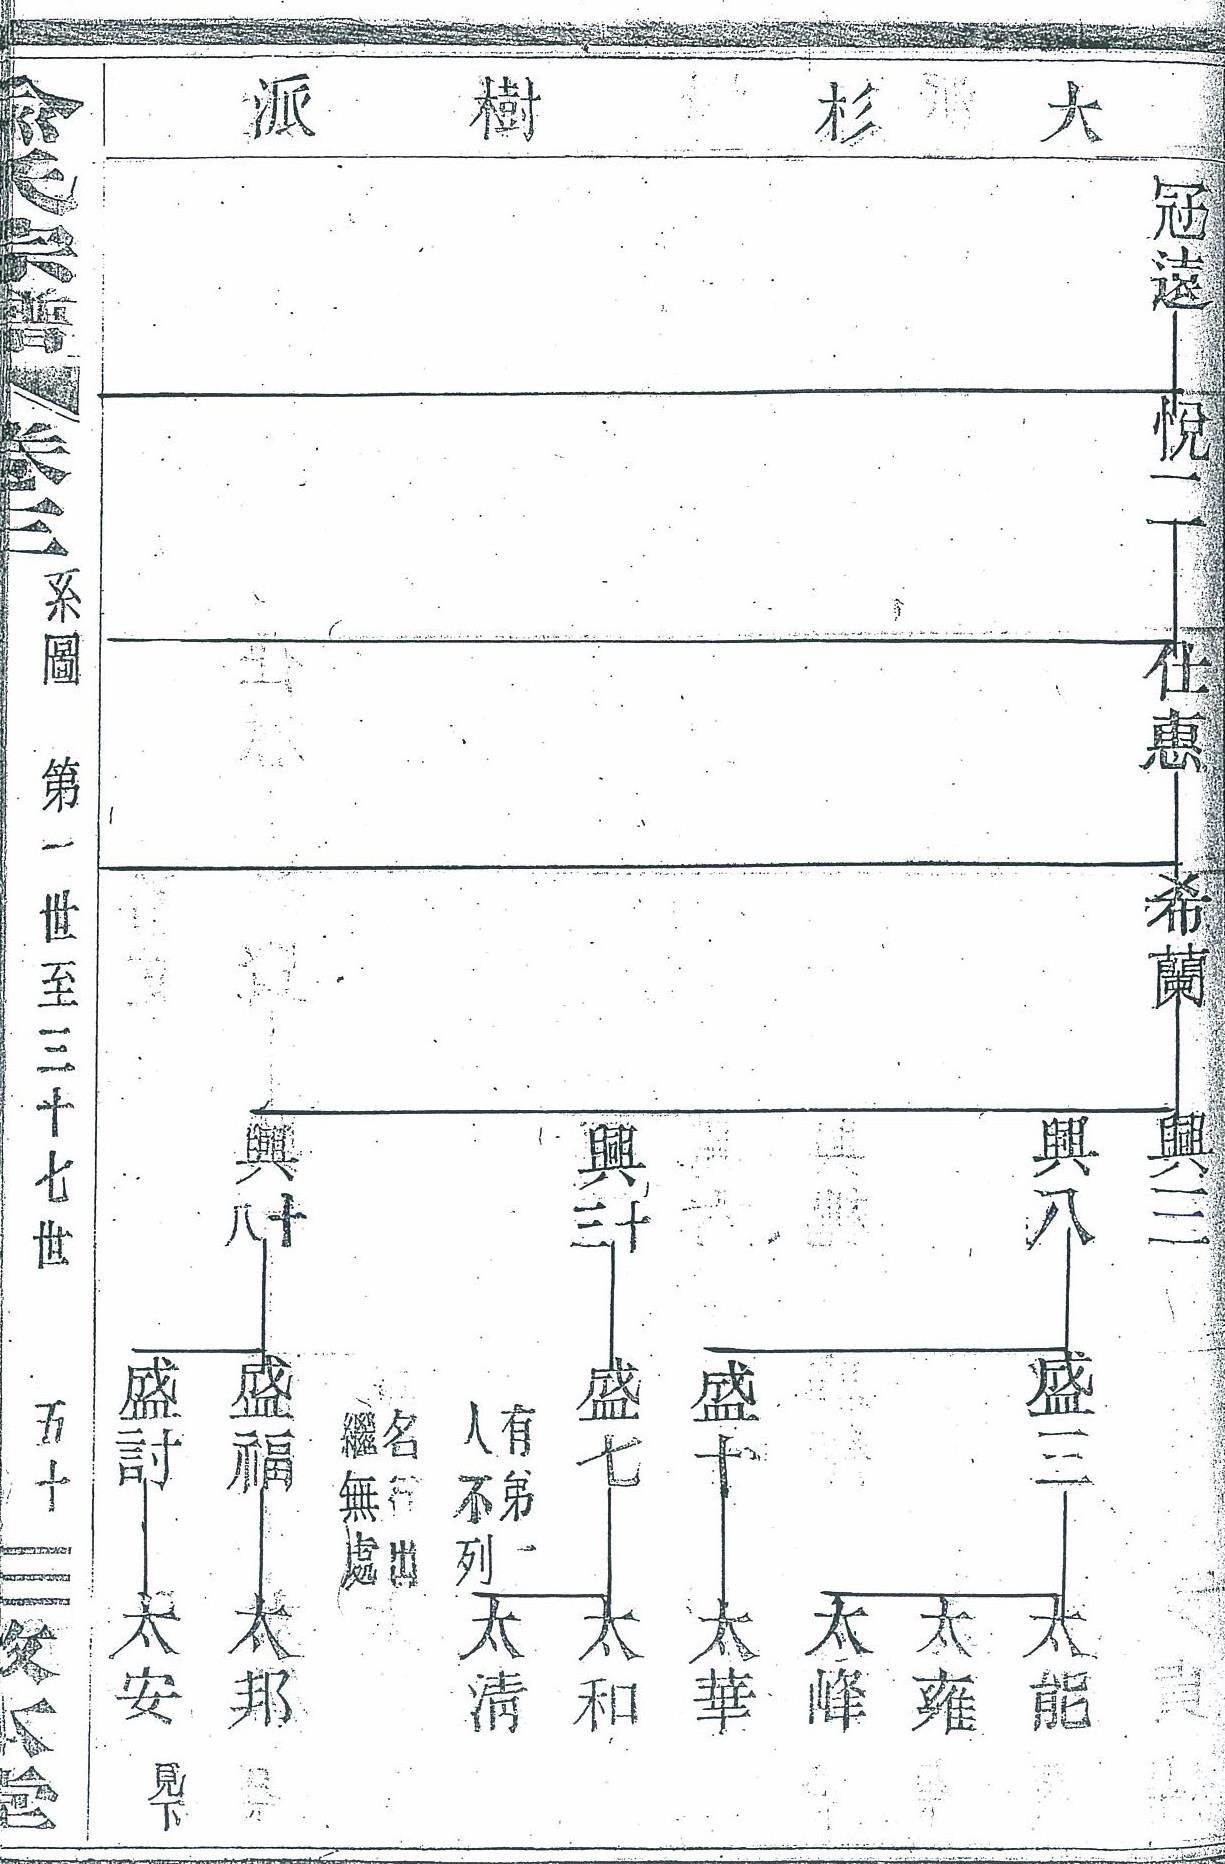 大杉樹派
冠遠
悅二
仕惠
希蘭
興三
興八
興十三
興十八
盛三
盛十
盛七
有第一
人不列
名出
繼無處
盛福
盛討
太能
太雍
太峰
太華
太和
太清
太邦
太安
見下
宗譜
卷三
系圖 第一世至三十七世 五十三